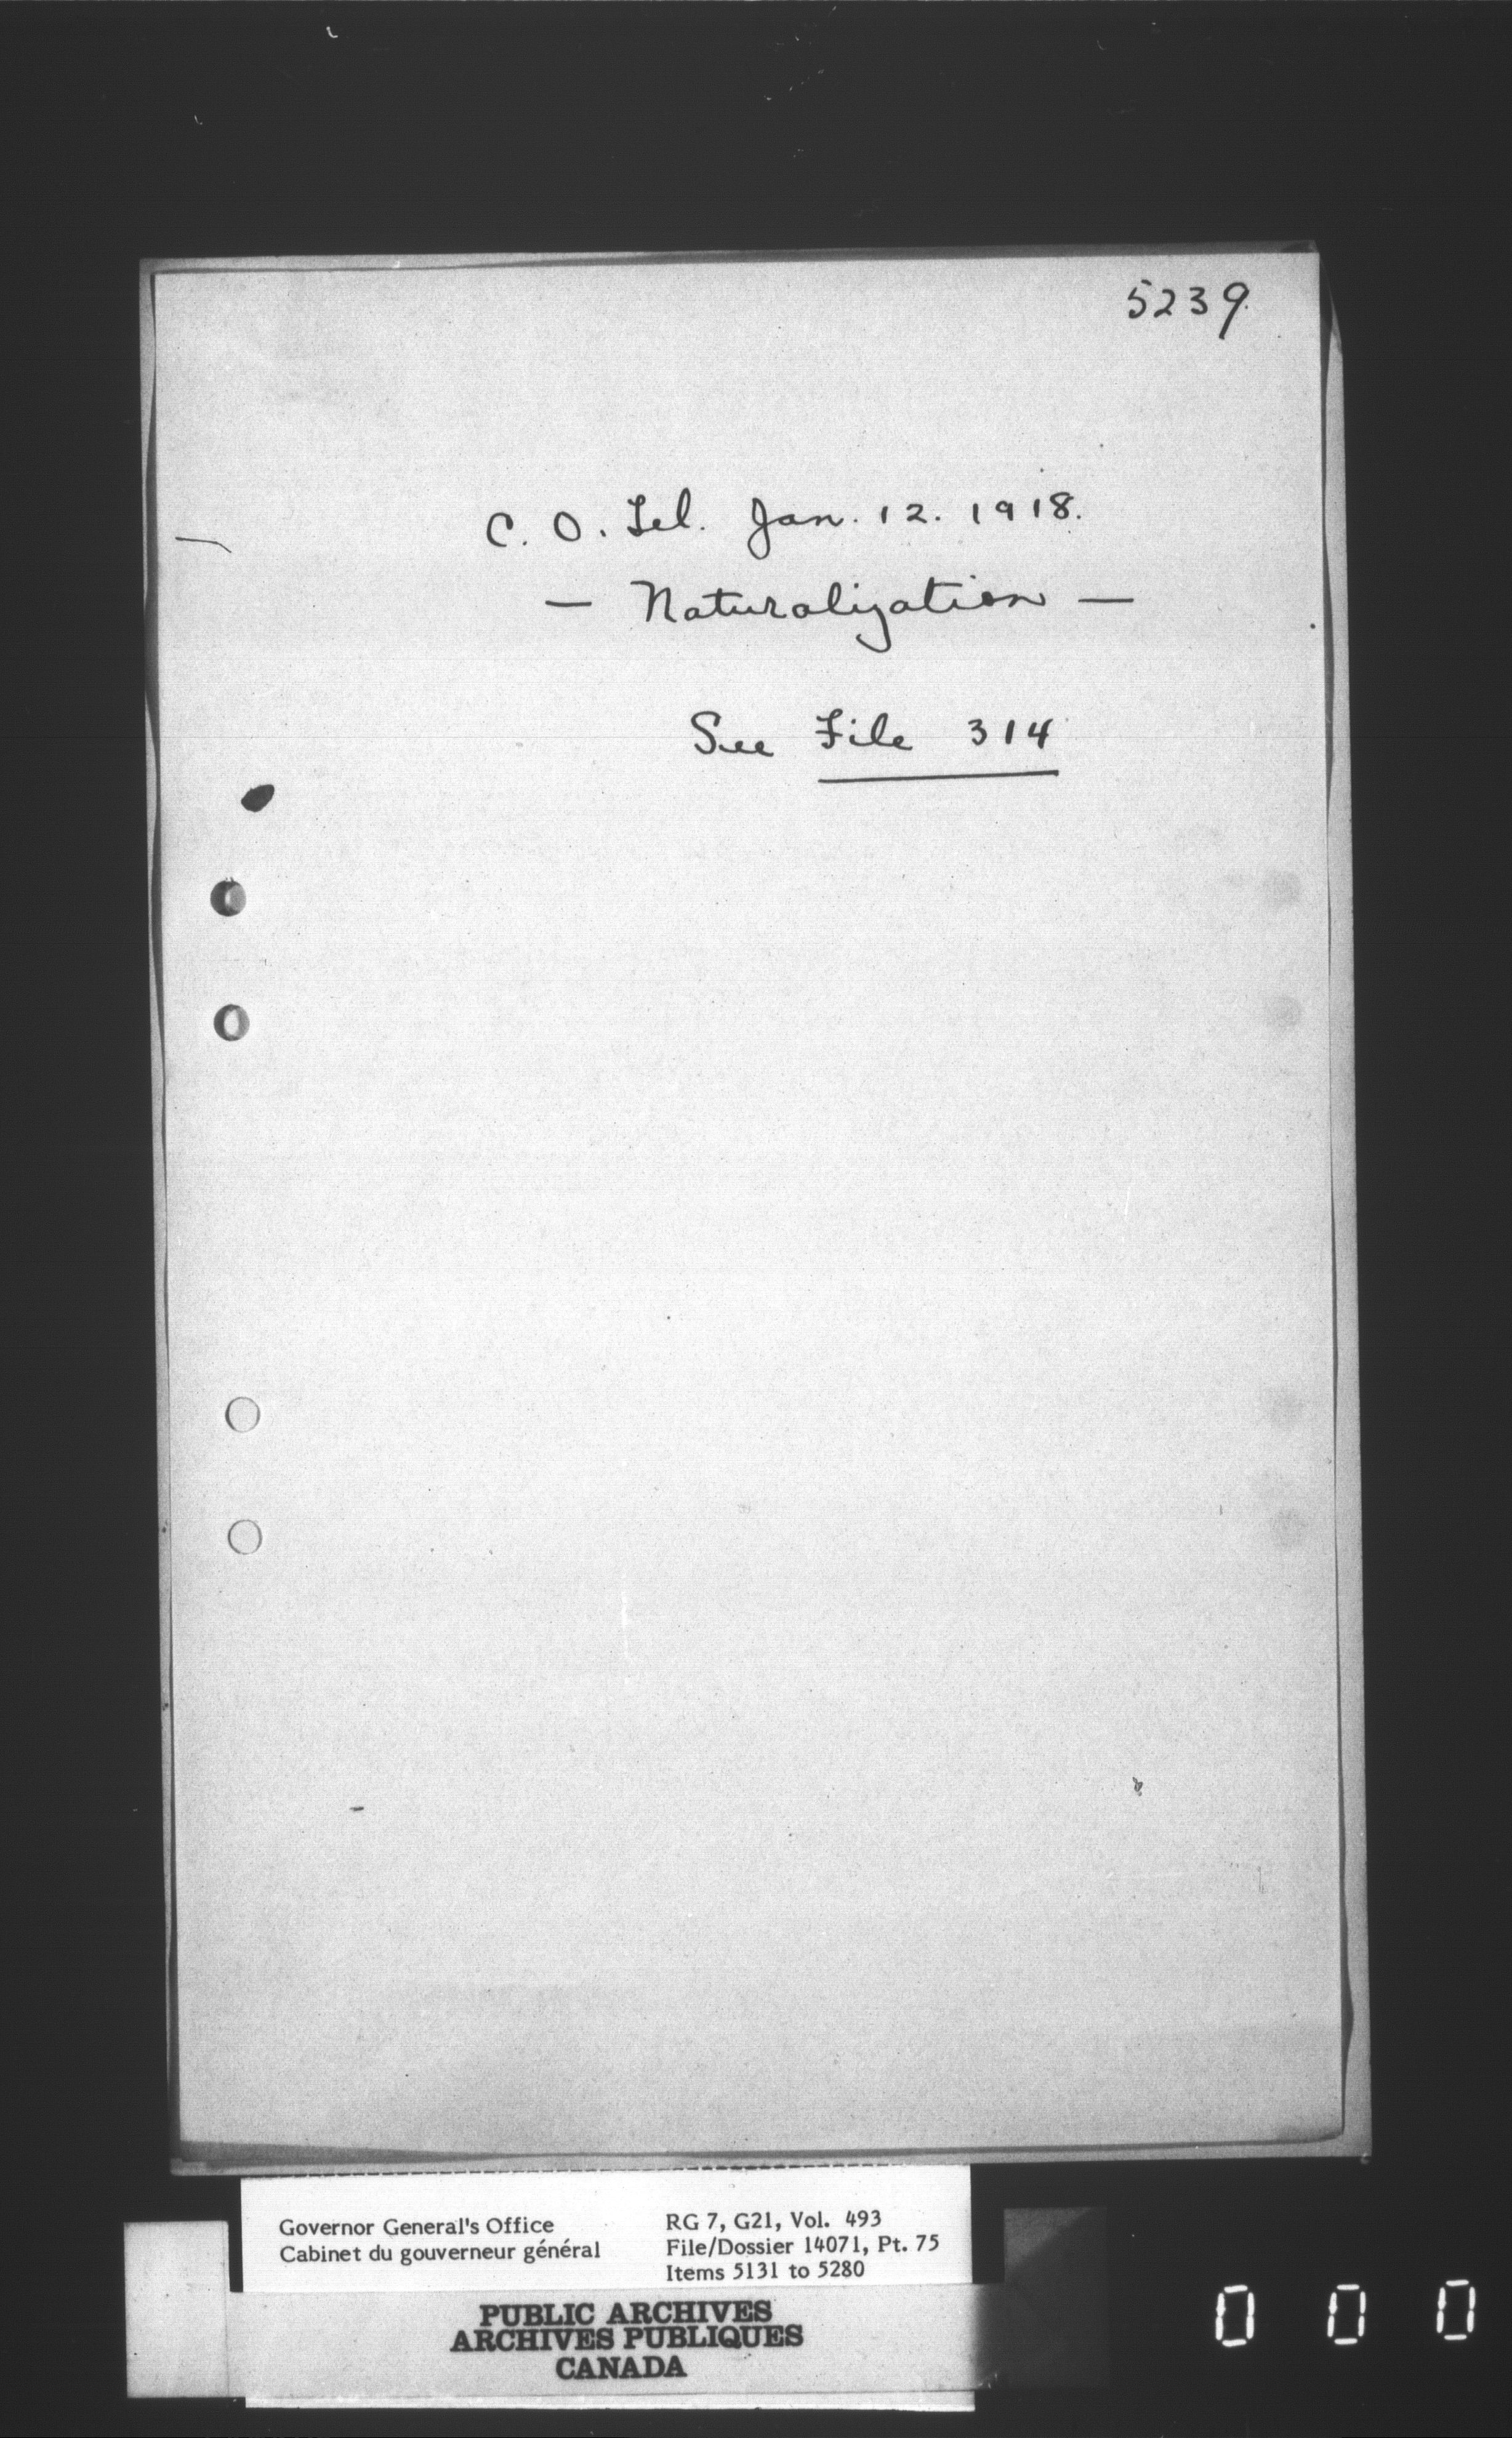 5239.
C. O. Tel. Jan. 12. 1918.
— Naturalization —
See File 314
Governor General's Office
Cabinet du gouverneur général
RG 7, G21, Vol. 493
File/Dossier 14071, Pt. 75
Items 5131 to 5280
PUBLIC ARCHIVES
ARCHIVES PUBLIQUES
CANADA
0 0 0